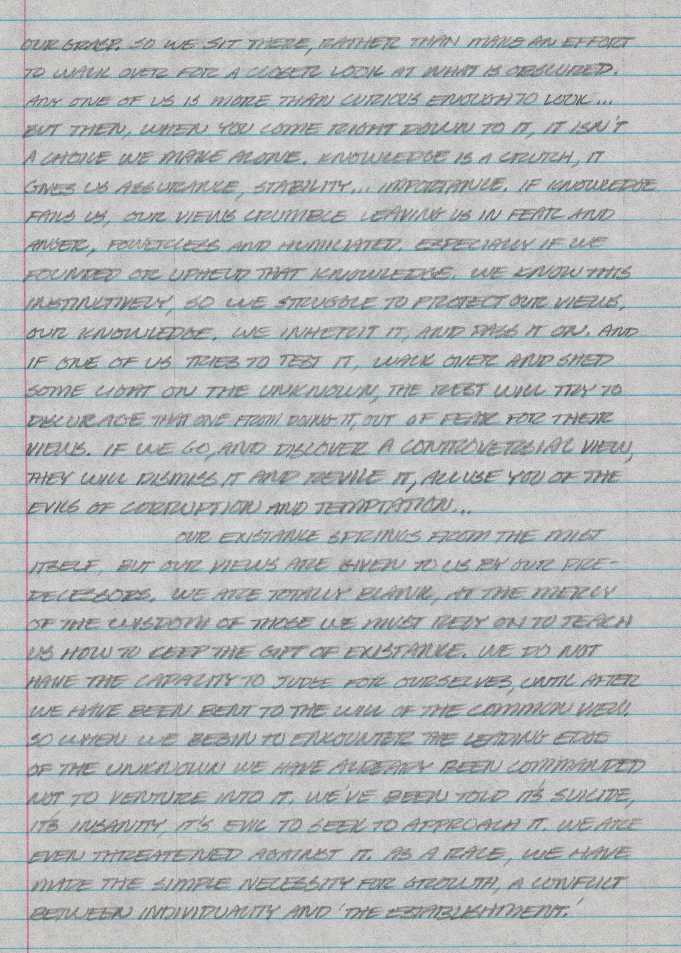 OUR GRASP. SO WE SIT THERE, RATHER THAN MAKE AN EFFORT
TO WALK OVER FOR A CLOSER LOOK AT WHAT IS OBSCURED.
ANY ONE OF US IS MORE THAN CURIOUS ENOUGH TO LOOK...
BUT THEN, WHEN YOU COME RIGHT DOWN TO IT, IT ISN'T
A CHOICE WE MAKE ALONE. KNOWLEDGE IS A CRUTCH, IT
GIVES US ASSURANCE, STABILITY... IMPORTANCE. IF KNOWLEDGE
FAILS US, OUR VIEWS CRUMBLE LEAVING US IN FEAR AND
ANGER, POWERLESS AND HUMILIATED. ESPECIALLY IF WE
FOUNDED OR UPHELD THAT KNOWLEDGE. WE KNOW THIS
INSTINCTIVELY, SO WE STRUGGLE TO PROTECT OUR VIEWS,
OUR KNOWLEDGE. WE INHERIT IT, AND PASS IT ON. AND
IF ONE OF US TRIES TO TEST IT, WALK OVER AND SHED
SOME LIGHT ON THE UNKNOWN, THE REST WILL TRY TO
DISCURAGE THAT ONE FROM DOING IT, OUT OF FEAR FOR THEIR
VIEWS. IF WE GO, AND DISCOVER A CONTROVERSIAL VIEW,
THEY WILL DISMISS IT AND REVILE IT, ACCUSE YOU OF THE
EVILS OF CORRUPTION AND TEMPTATION...
OUR EXISTANCE SPRINGS FROM THE MIST
ITSELF, BUT OUR VIEWS ARE GIVEN TO US BY OUR PRE-
DECESSORS. WE ARE TOTALLY BLANK, AT THE MERCY
OF THE WISDOM OF THOSE WE MUST RELY ON TO TEACH
US HOW TO KEEP THE GIFT OF EXISTANCE. WE DO NOT
HAVE THE CAPACITY TO JUDGE FOR OURSELVES, UNTIL AFTER
WE HAVE BEEN BENT TO THE WILL OF THE COMMON VIEW.
SO WHEN WE BEGIN TO ENCOUNTER THE LEADING EDGE
OF THE UNKNOWN WE HAVE ALREADY BEEN COMMANDED
NOT TO VENTURE INTO IT. WE'VE BEEN TOLD IT'S SUICIDE,
IT'S INSANITY, IT'S EVIL TO SEEK TO APPROACH IT. WE ARE
EVEN THREATENED AGAINST IT. AS A RACE, WE HAVE
MADE THE SIMPLE NECESSITY FOR GROWTH, A CONFLICT
BETWEEN INDIVIDUALITY AND 'THE ESTABLISHMENT.'